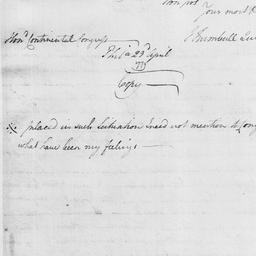 Your most
J Trumbull
Hon.l Continental Congress
Phil.a 23.d April
1777
Copy
※ placed in such Situation I need not mention to Cong
what have been my feelings —